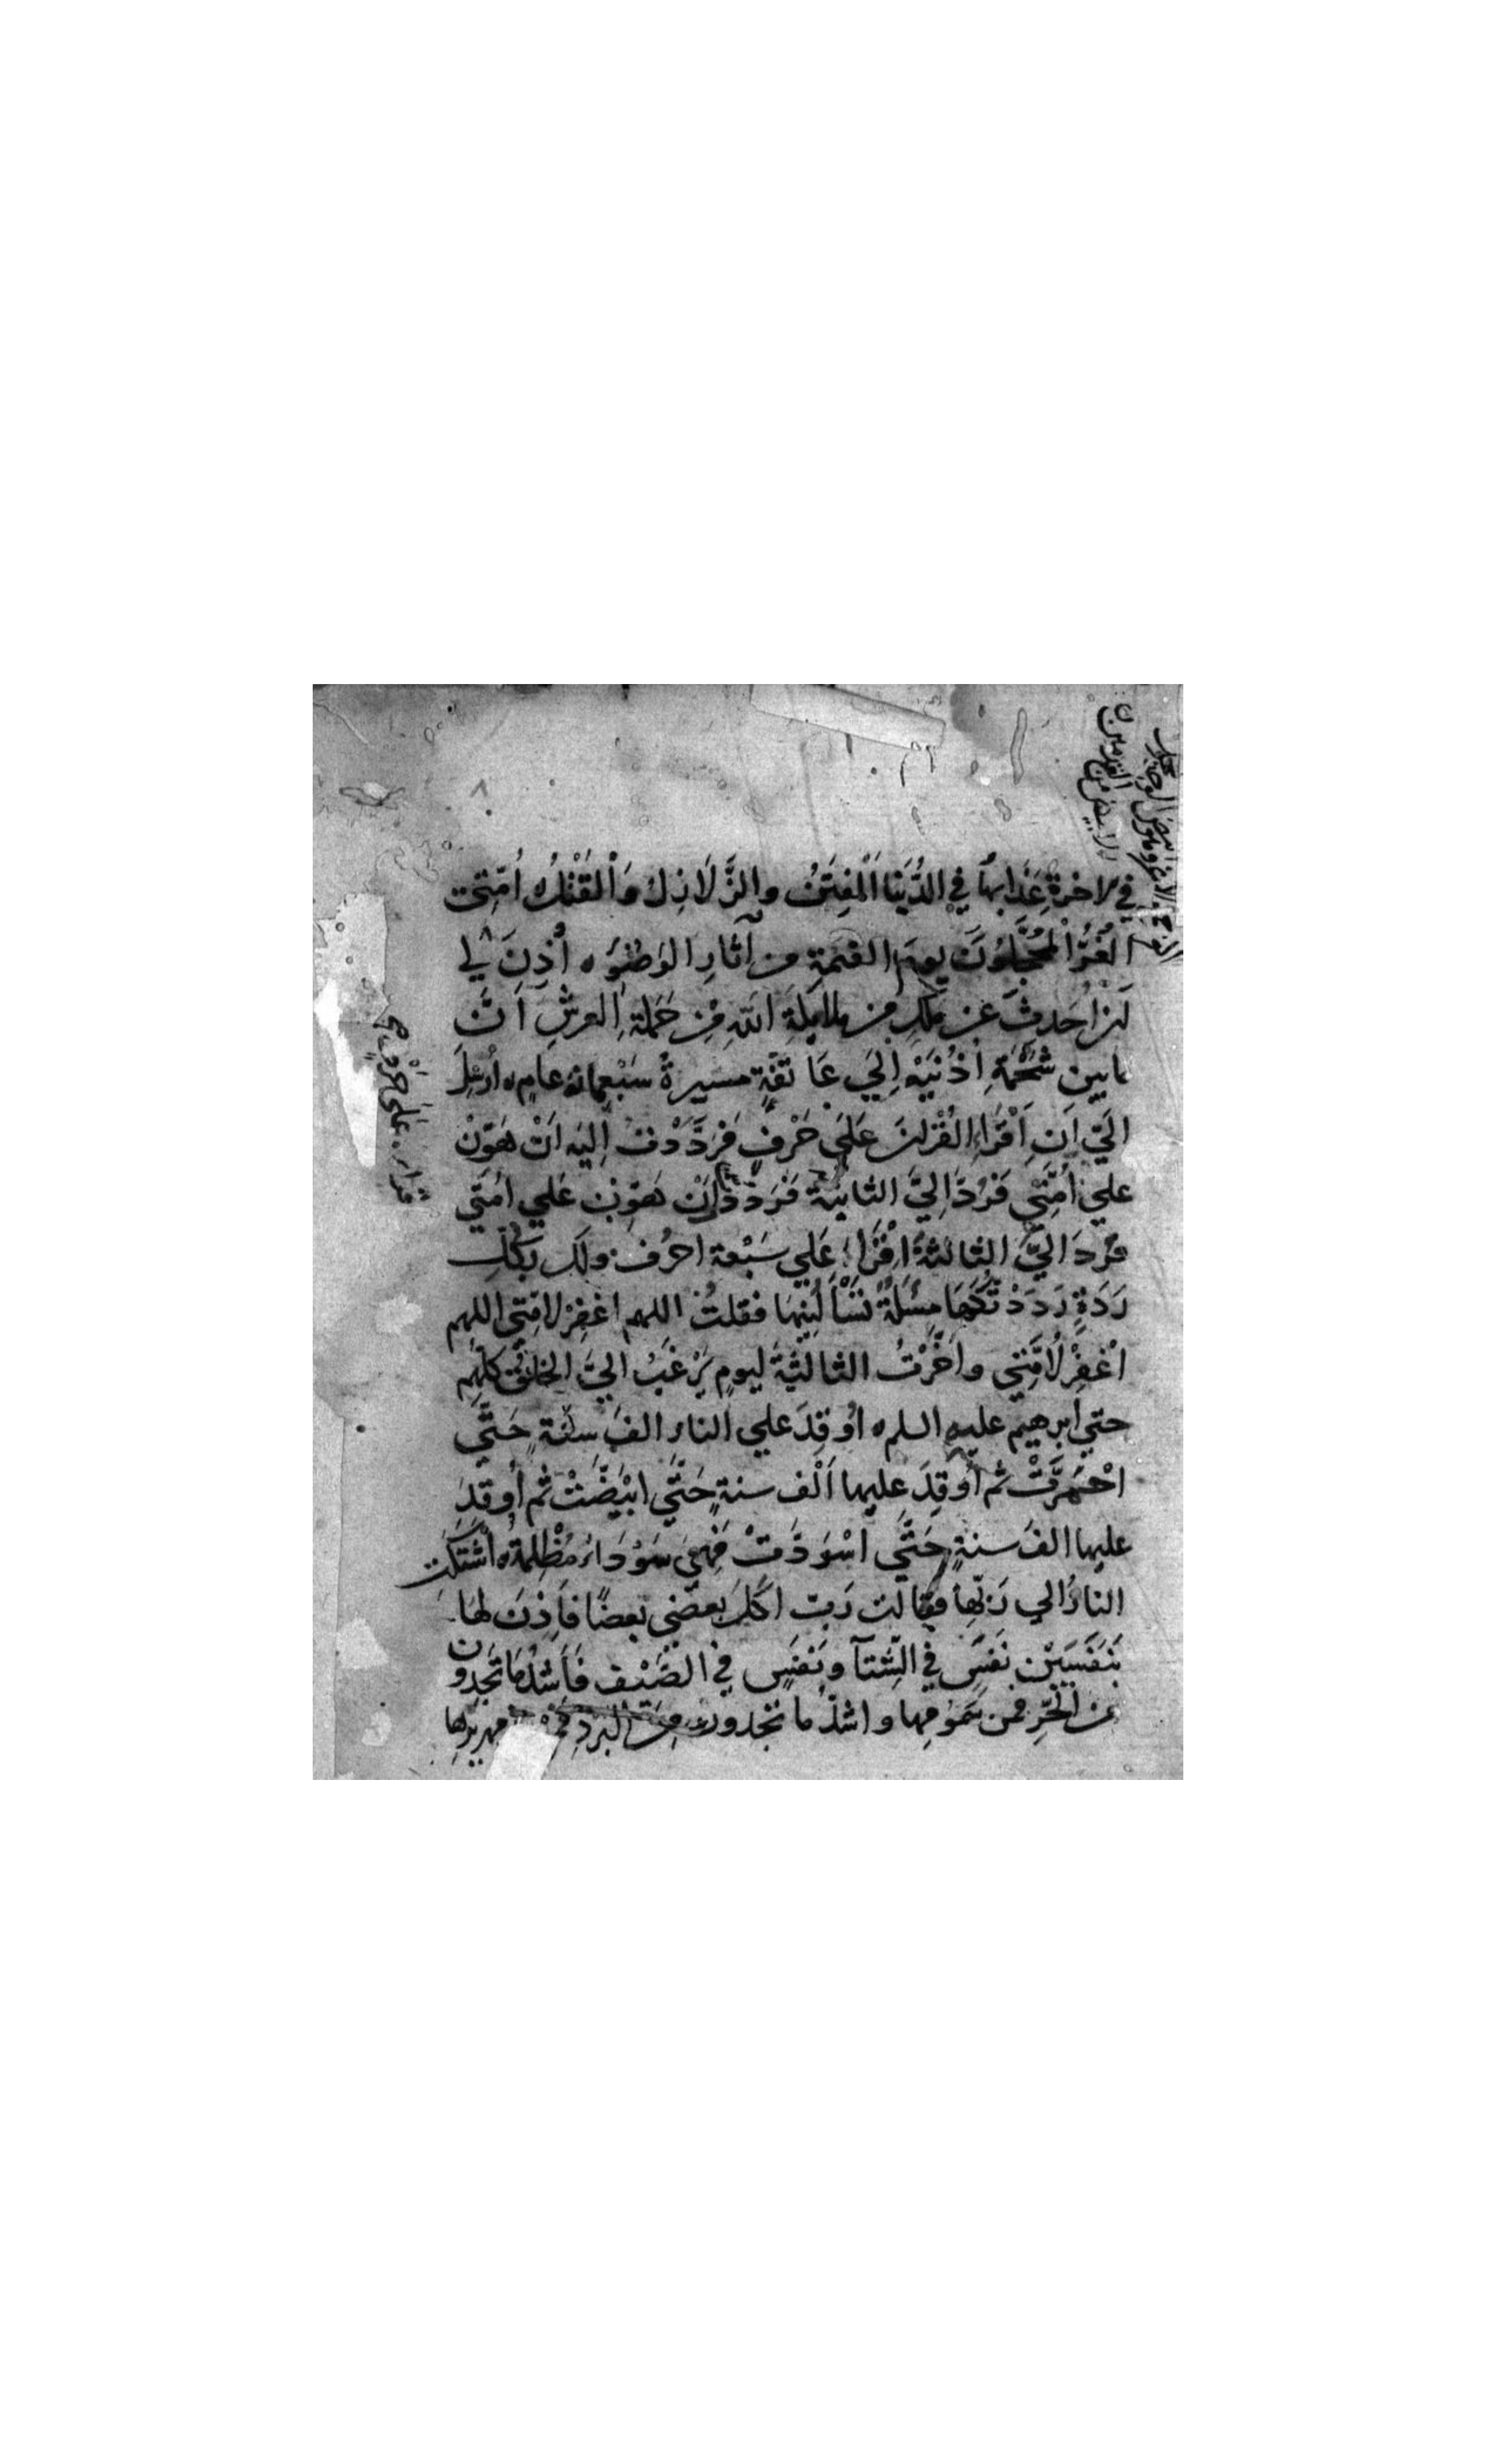 في الاخرةِ عَذَابهُا في الدُّنيَا اَلْفِتَنُ والزَّلَازِلُ وَالْقَتْلُ ه اُمَّتِي
الغُرُّ الْمُحَجَّلُونَ يومَ القيمَةِ من آثارِ الوُضُوْءِ ه أُذِنَ لي
اَنْ اُحَدِثَ عَن مَلَكٍ من ملائكةِ اللهِ مِنْ حَمَلةِ العرشِ اَنَّ
مابين شَحْمَةِ اُذُنَيْهِ اِلَي عَاتقهِ مسيرةُ سَبْعِمائة عامٍ ه اُرْسِلَ
اليَّ اَنِ اَقْرَاءِ القُرْانَ عَلَى حَرْفٍ فَرَدَّدْتُ اِليه اَنْ هَوّنْ
علي اُمَّتِي فَرُدَّ اِليَّ الثانيةَ فَرَدَدْتُ اَنْ هَوّنْ عَلي اُمَّتي
فرُدَ اليَّ الثالثةَ اِقْرَاءْ عَلي سَبْعة احرُف ولكَ بكُلِّ
رَدَةٍ رَدَدْتُكَهَا مسْئَلةٌ تَسْأَلُنِيْهَا فقلتُ اللهم اغْفِرْ لامَّتِي اللهم
اغْفِرْ لاُمَّتِي واَخَّرْتُ الثالثةَ ليومٍ يَرْغَبُ اليَّ الخلائق كلُهُم
حتي ابرهيم عليه السلم ه اُوْقِدَ علي النار الفَ سنة حَتَّي
احْمَرَّتْ ثم اُوْقِدَ عليها اَلْف سنةٍ حَتَّي ابْيَضَّتْ ثم اُوقِدَ
عليها الفَ سنةٍ حَتَّي اسْوَدَّتْ فهِيَ سَوْدَاءُ مُظْلِمةٌ ه اُشْتَكَتِ
النارُ الي رَبّها فقالت رَبّ اَكَلَ بعضي بعضًا فَاَذِنَ لهَا
بنَفَسَيْنِ نفَسٍ في الشّتآ ونَفسٍ في الصَّيْف فَاَشدُ مَا تَجدون
من الحَرِّ فمن سَمُوْمِها واشدُ ما تجدون من البَرْدِ